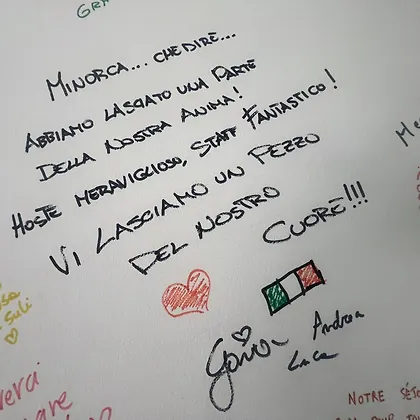 GRA
MINORCA... CHE DIRE...
ABBIAMO LASCIATO UNA PARTE
DELLA NOSTRA ANIMA!
HOSTE MERAVIGLIOSO, STAFF FANTASTICO!
VI LASCIAMO UN PEZZO
DEL NOSTRO
CUORE!!!
Andrea
Luca
Suli
NOTRE SÉJ